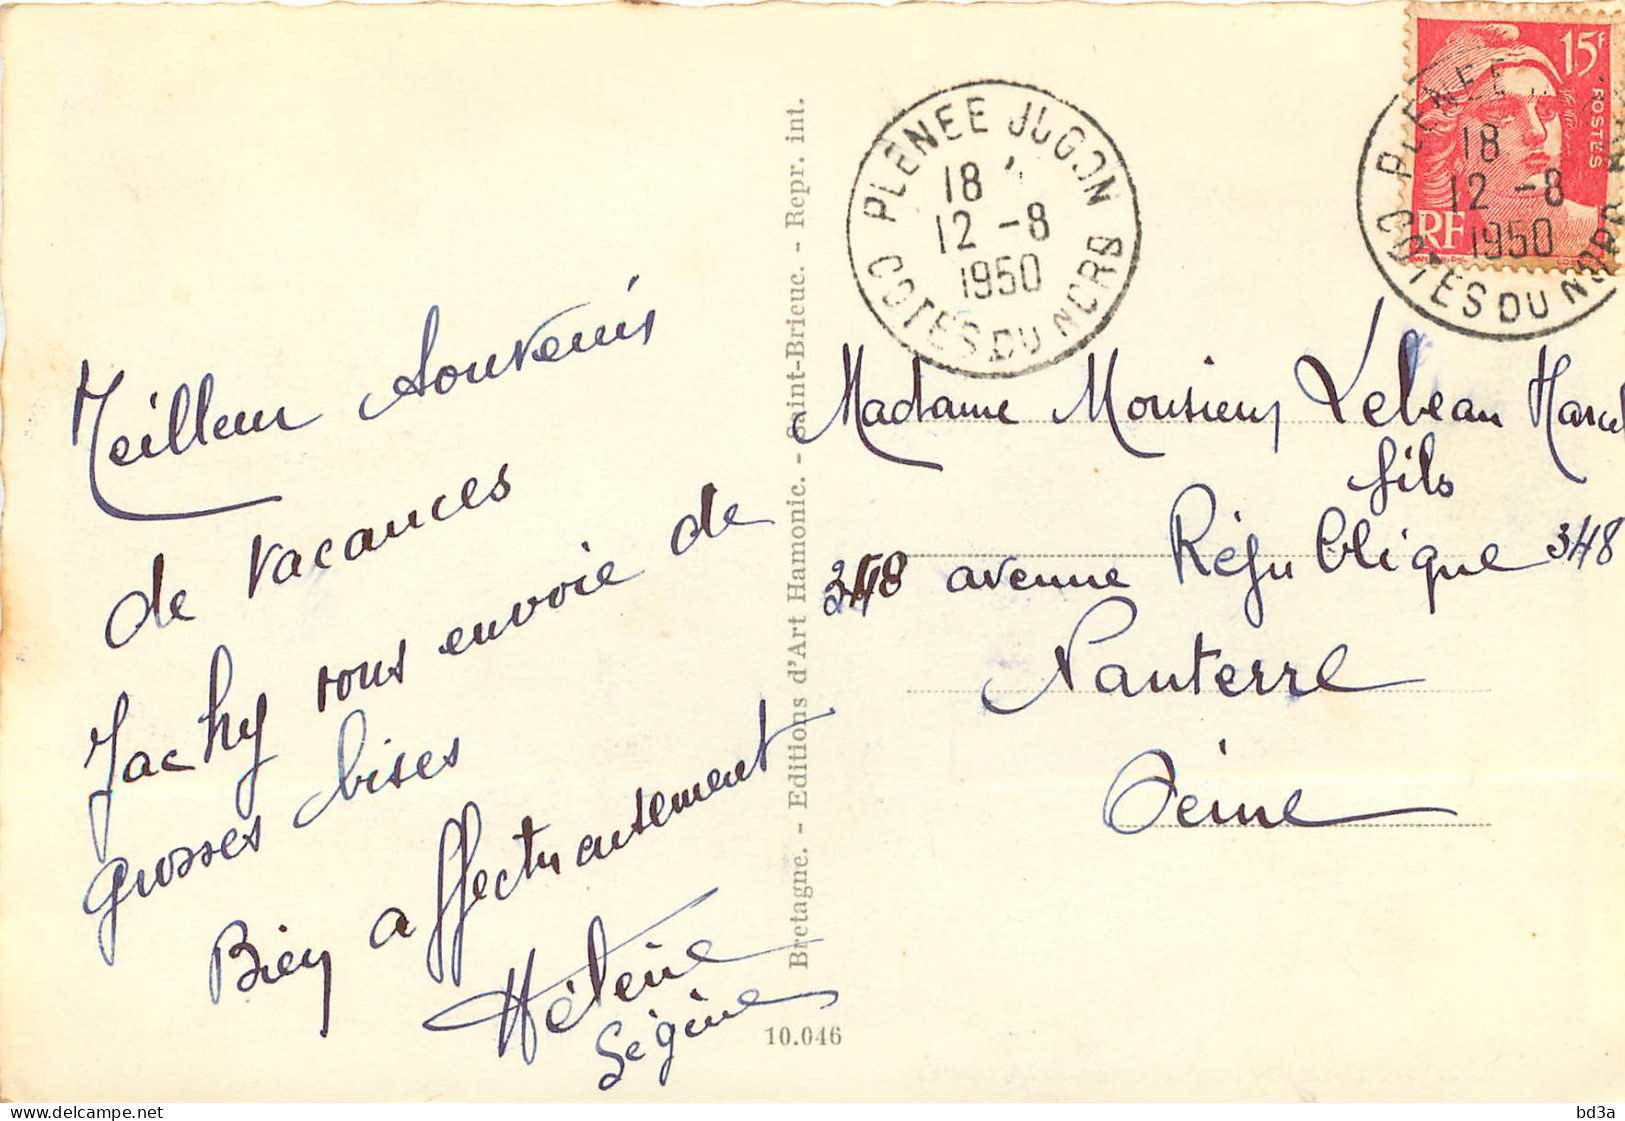 Meilleur souvenirs
de vacances
Jacky vous envoie de
grosses bises
Bien affectueusement
Hélène
Bretagne. - Editions d'Art Hamonic. - Saint-Brieuc. - Repr. int.
10.046
PLENEE JUGON
18
12 -8
1950
COTES DU NORD
15F
POSTES
RF
PLENEE
18
12 -8
1950
COTES DU NORD
Madame Monsieur Lebeau Marcel
fils
348 avenue République 348
Nanterre
Seine
bd3a